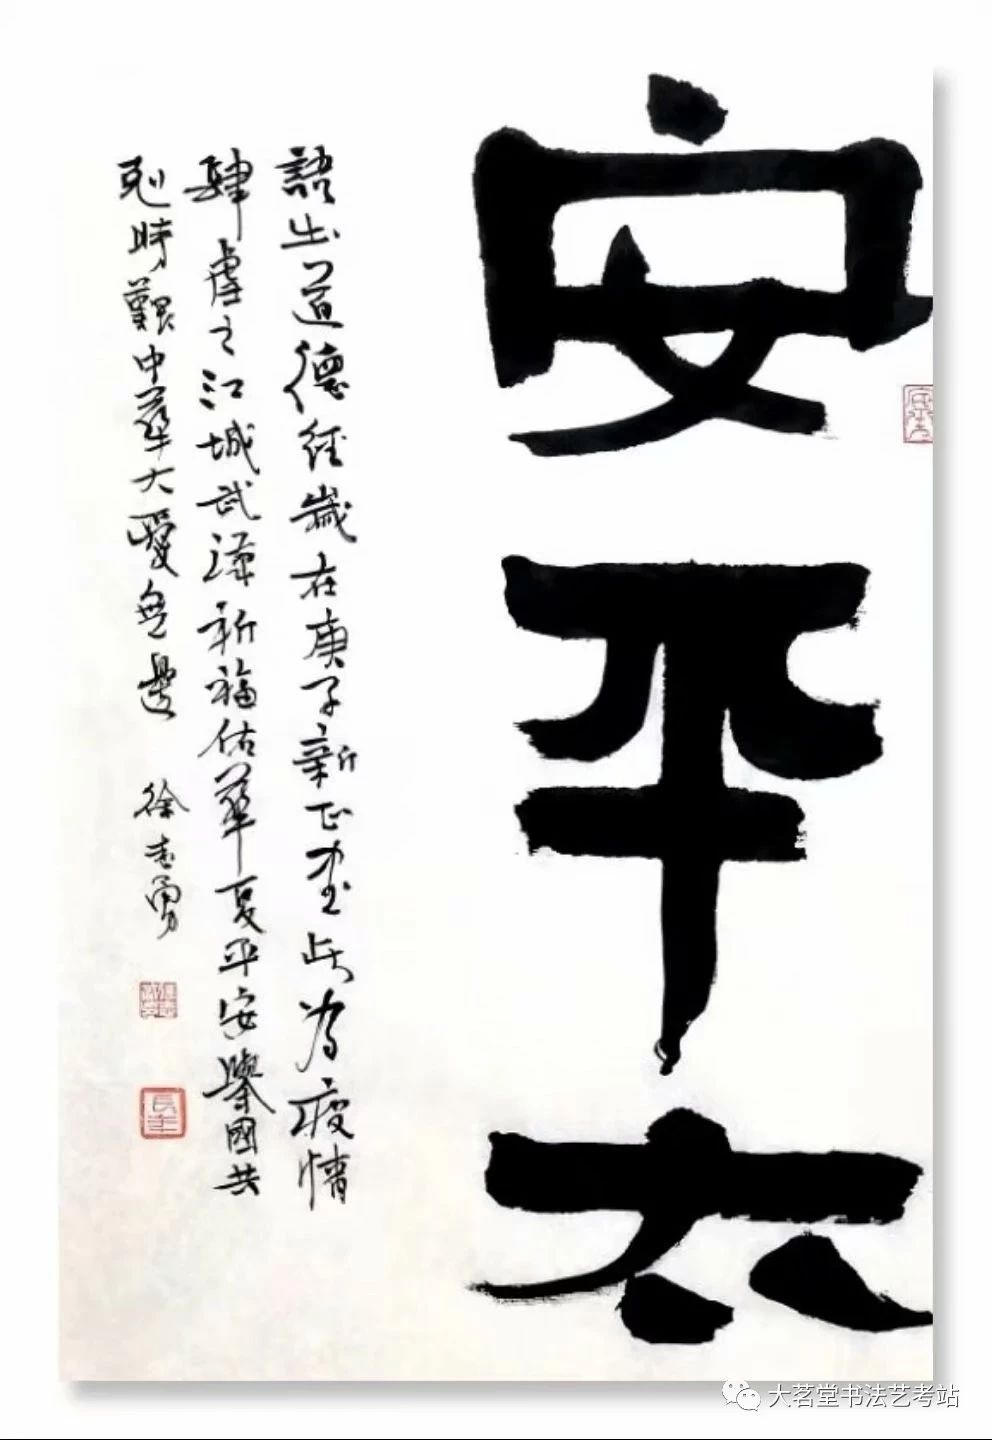 安平太
語出道德經歲在庚子新正書此為疫情
肆虐之江城武漢祈福佑華夏平安舉國共
克時艱中華大愛無邊
徐志勇
大茗堂书法艺考站